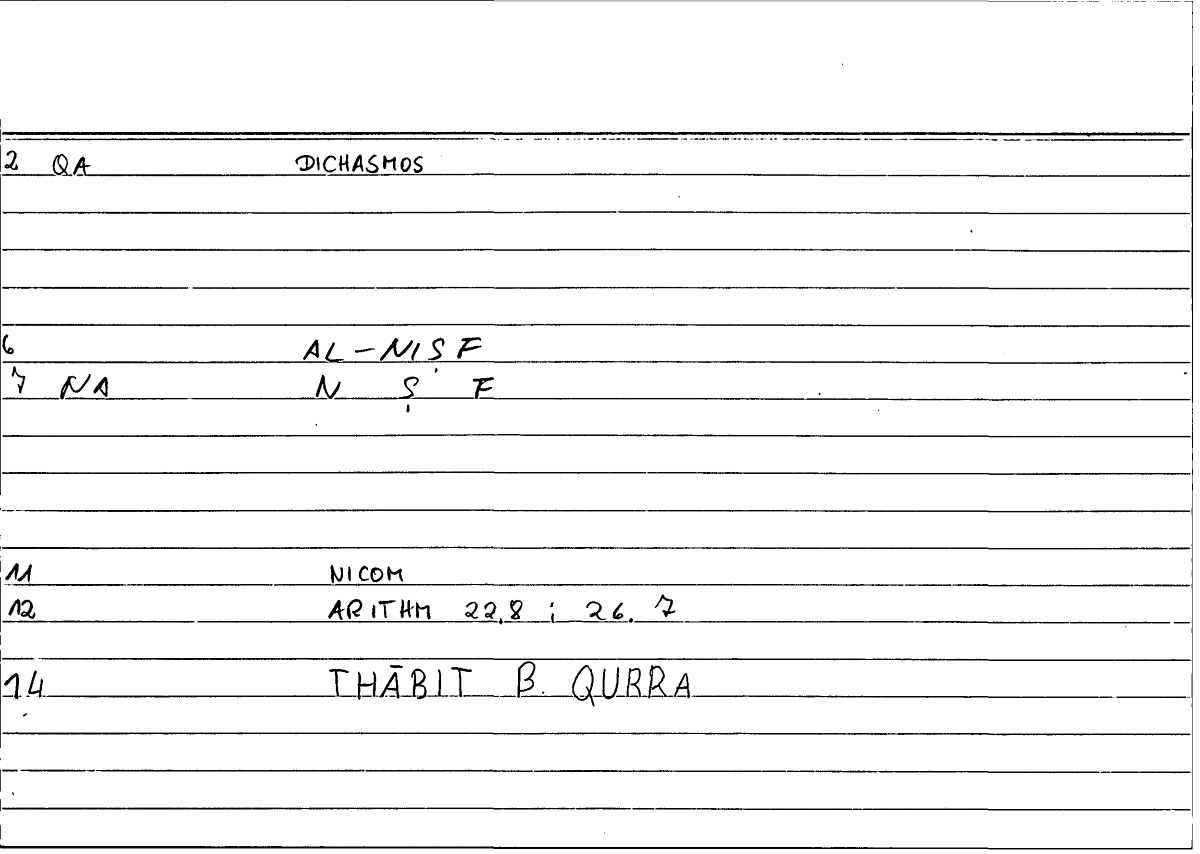 2 QA DICHASMOS
6 AL-NIṢF
7 NA N Ṣ F
11 NICOM
12 ARITHM 22,8 ; 26. 7
14 THĀBIT B. QURRA